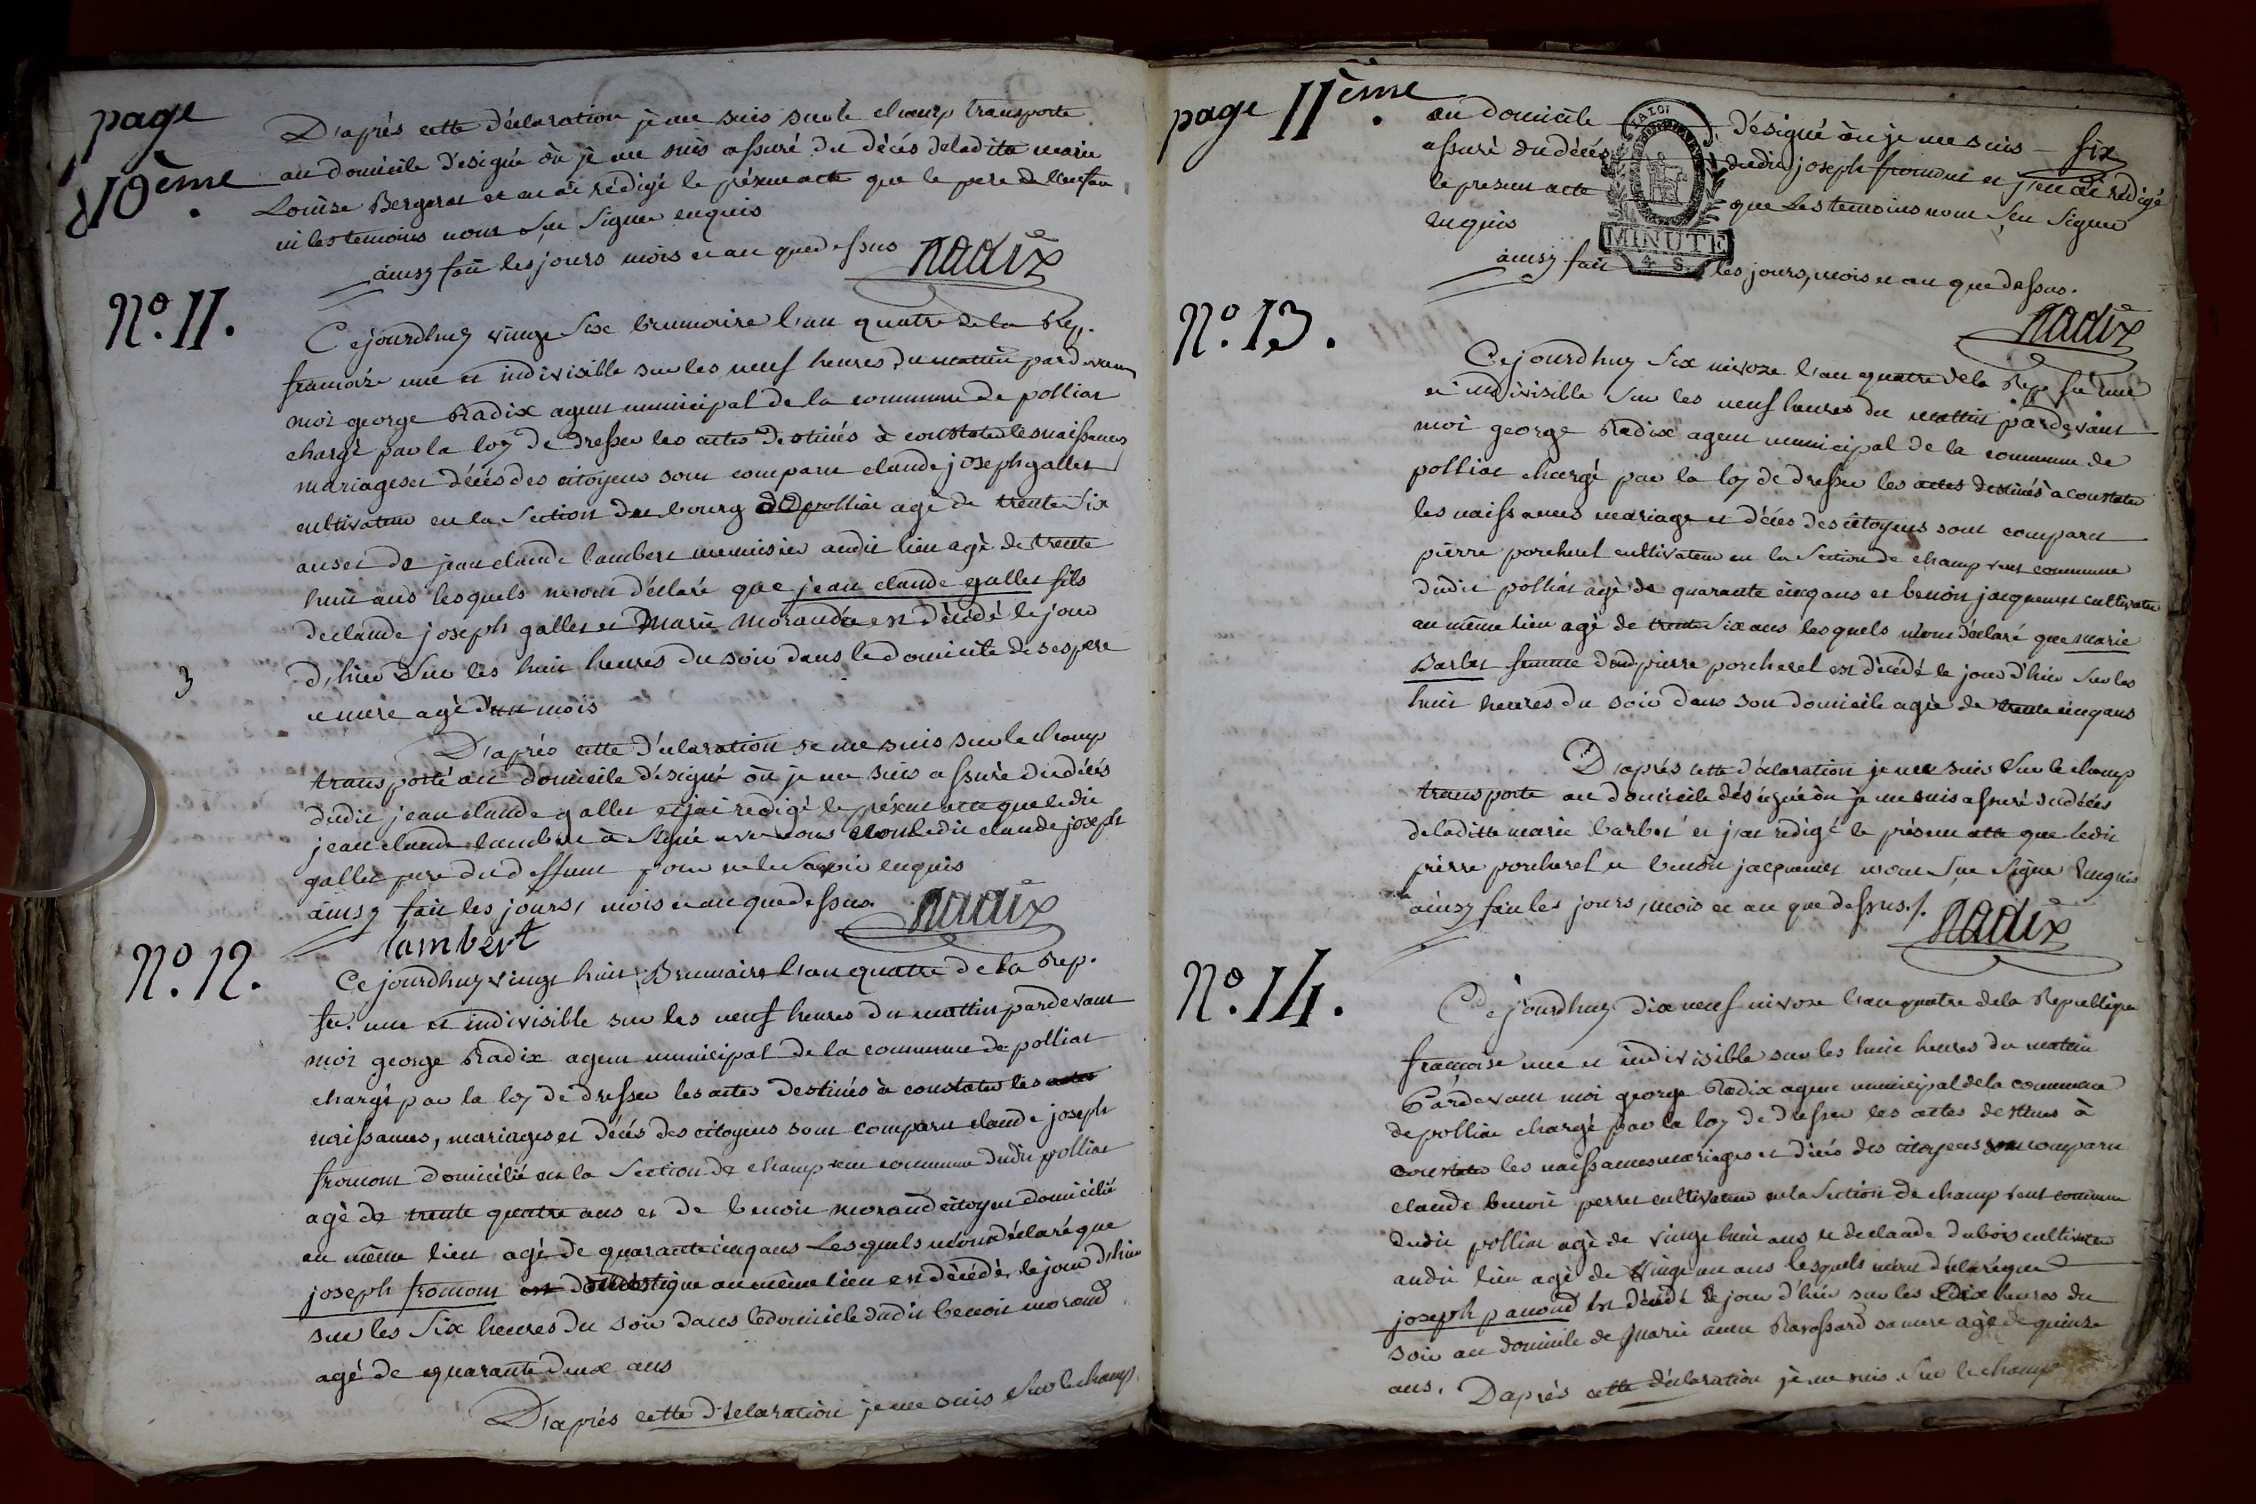 page
10ème
D'aprés cette déclaration je me suis sur le champ transporte
au domicile désigné où je me suis assuré du décés de ladite marie
Louise Bergeret et en ai rédigé le présent acte que le pere de l'enfan
ni les temoins n'ont su Signer enquis
ainsy fait les jours mois et an que dessus Radix
No. 11.
Ce jourdhuy vingt Six brumaire l'an quatre de la Rep.
francoise une et indivisible sur les neuf heures du mattin pardevan
moi george Radix agent municipal de la commune de polliat
chargé par la loy de dresser les actes destinés à constater les naissances
mariages et décés des citoyens sont comparu claude joseph gallet
cultivateur en la Section du bourg de polliat agé de trente Six
ans et de jean claude lambert menuisier audit lieu agé de trente
huit ans lesquels m'ont déclaré que jean claude gallet fils
de claude joseph gallet et Marie Morand est décédé le jour
d'hier Sur les huit heures du soir dans le domicile de ses pere
3
et mere agé d'un mois
D'aprés cette déclaration je me suis sur le champ
transporté au domicile désigné où je me suis assuré du décés
dudit jean claude gallet et j'ai redigé le présent acte que ledit
jean claude lambert à Signé avec nous et non ledit claude joseph
gallet pere du deffunt pour ne le Savoir enquis
ainsy fait les jours, mois et an que dessus. Radix
lambert
No. 12.
Ce jourdhuy vingt huit Brumaire l'an quatre de la Rep.
fr. une et indivisible sur les neuf heures du mattin pardevant
moi george Radix agent municipal de la commune de polliat
chargé par la loy de dresser les actes destinés à constater les actes
naissances, mariages et décés des citoyens sont comparu claude joseph
fromont domicilié en la Section de champ vent commune dudit polliat
agé de trente quatre ans et de benoit morand citoyen domicilié
au même lieu agé de quarante cinq ans Lesquels m'ont déclaré que
joseph fromont est domestique au même lieu est décédé le jour d'hier
sur les Six heures du soir dans le domicile dudit benoit morand
agé de quarante deux ans
D'aprés cette déclaration je me suis Sur le champ
page 11ème.
au domicile désigné où je me suis six
assuré du décés dudit joseph fromont et j'en ai rédigé
le present acte que Les temoins n'ont Seu Signer
enquis
MINUTE
4 S.
ainsy fait les jours, mois et an que dessus.
Radix
No. 13.
Ce jourdhuy Six nivose l'an quatre de la Rep fr une
et indivisible Sur les neuf heures du mattin pardevant
moi george Radix agent municipal de la commune de
polliat chargé par la loy de dresser les actes destinés à constater
les naissances mariage et décés des citoyens sont comparu
pierre porcherel cultivateur en la Section de champ vent commune
dudit polliat agé de quarante cinq ans et benoit jacquemet cultivateur
au même lieu agé de trente Six ans lesquels m'ont déclaré que marie
Barbet femme dud pierre porcherel est décédé le jour d'hier Sur les
huit heures du soir dans son domicile agée de trente cinq ans
D'aprés cette déclaration je me suis Sur le champ
transporte au domicile désigné où je me suis assuré du décés
de laditte marie barbet et j'ai redigé le présent acte que ledit
pierre porcherel et benoit jacquemet n'ont Su Signer Enquis
ainsy fait les jours, mois et an que dessus./. Radix
No. 14.
Ce jourdhuy dix neuf nivose l'an quatre de la Republique
francoise une et indivisible sur les huit heures du matin
Pardevant moi george Radix agent municipal de la commune
de polliat chargé par la loy de dresser les actes destinés à
constater les naissances mariages et décés des citoyens sont comparu
claude benoit perret cultivateur en la Section de champ vent commune
dudit polliat agé de vingt huit ans et de claude dubois cultivateur
audit lieu agé de Vingt un ans lesquels m'ont déclaré que
joseph panoud est décédé le jour d'hier sur les Dix heures du
soir au domicile de Marie anne Ravassard sa mere agé de quinze
ans. D'aprés cette déclaration je me suis Sur le champ